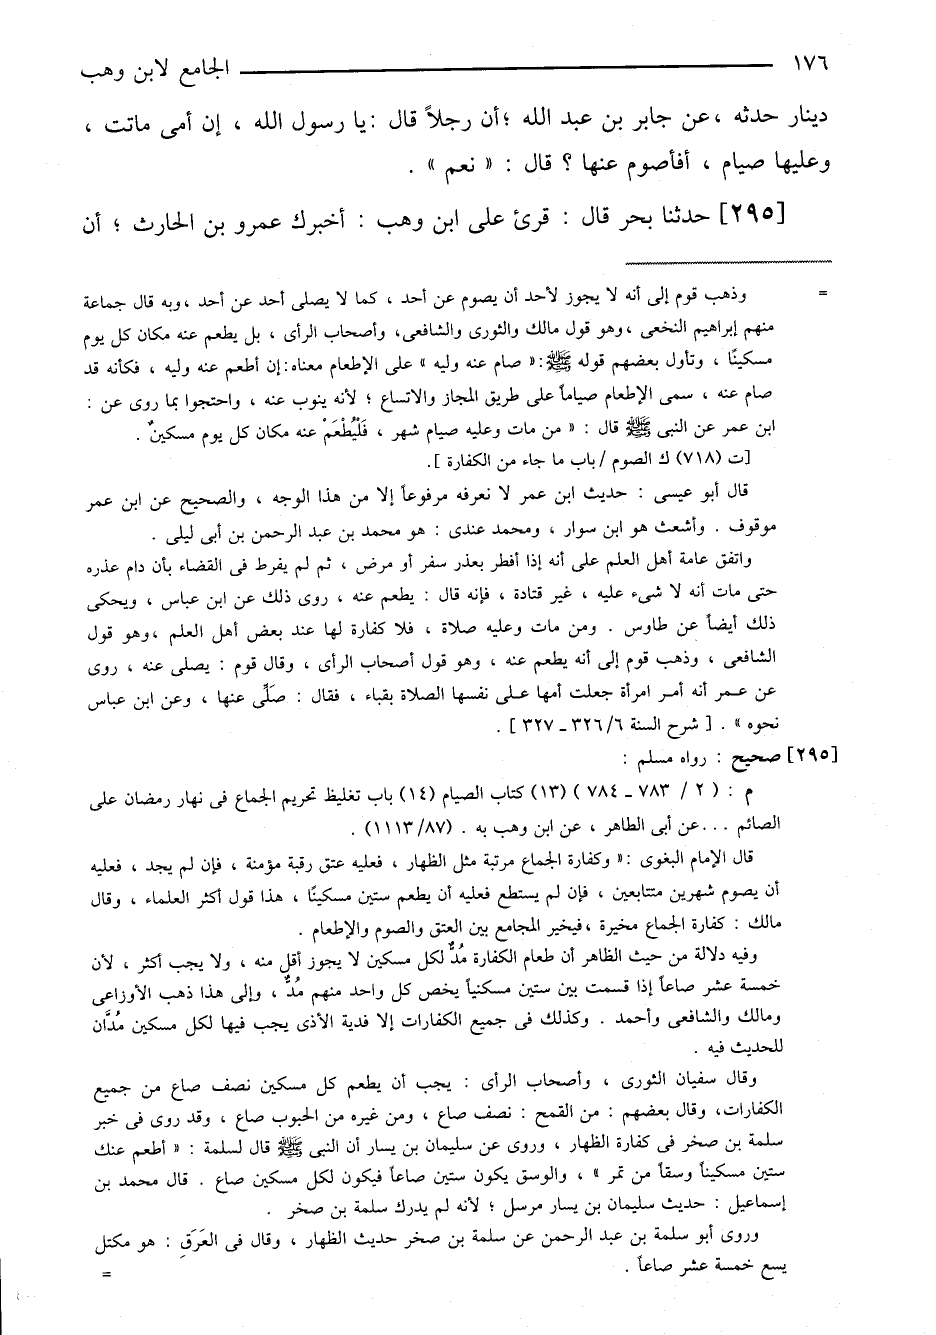 ١٧٦ الجامع لابن وهب
دينار حدثه ،عن جابر بن عبد الله ؛أن رجلاً قال :يا رسول الله ، إن أمى ماتت ،
وعليها صيام ، أفأصوم عنها ؟ قال : « نعم » .
[٢٩٥] حدثنا بحر قال : قرئ على ابن وهب : أخبرك عمرو بن الحارث ؛ أن
= وذهب قوم إلى أنه لا يجوز لأحد أن يصوم عن أحد ، كما لا يصلى أحد عن أحد ،وبه قال جماعة
منهم إبراهيم النخعى ،وهو قول مالك والثورى والشافعى، وأصحاب الرأى ، بل يطعم عنه مكان كل يوم
مسكينًا ، وتأول بعضهم قوله ﷺ:« صام عنه وليه » على الإطعام معناه:إن أطعم عنه وليه ، فكأنه قد
صام عنه ، سمى الإطعام صياماً على طريق المجاز والاتساع ؛ لأنه ينوب عنه ، واحتجوا بما روى عن :
ابن عمر عن النبى ﷺ قال : « من مات وعليه صيام شهر ، فَلْيُطْعَمْ عنه مكان كل يوم مسكينٌ .
[ت (٧١٨) ك الصوم / باب ما جاء من الكفارة ].
قال أبو عيسى : حديث ابن عمر لا نعرفه مرفوعاً إلا من هذا الوجه ، والصحيح عن ابن عمر
موقوف . وأشعث هو ابن سوار ، ومحمد عندى : هو محمد بن عبد الرحمن بن أبى ليلى .
واتفق عامة أهل العلم على أنه إذا أفطر بعذر سفر أو مرض ، ثم لم يفرط فى القضاء بأن دام عذره
حتى مات أنه لا شىء عليه ، غير قتادة ، فإنه قال : يطعم عنه ، روى ذلك عن ابن عباس ، ويحكى
ذلك أيضاً عن طاوس . ومن مات وعليه صلاة ، فلا كفارة لها عند بعض أهل العلم ،وهو قول
الشافعى ، وذهب قوم إلى أنه يطعم عنه ، وهو قول أصحاب الرأى ، وقال قوم : يصلى عنه ، روى
عن عمر أنه أمر امرأة جعلت أمها على نفسها الصلاة بقباء ، فقال : صَلِّى عنها ، وعن ابن عباس
نحوه » . [ شرح السنة ٦/ ٣٢٦ ـ ٣٢٧ ] .
[٢٩٥] صحيح : رواه مسلم :
م : ( ٢ / ٧٨٣ ـ ٧٨٤ ) (١٣) كتاب الصيام (١٤) باب تغليظ تحريم الجماع فى نهار رمضان على
الصائم ...عن أبى الطاهر ، عن ابن وهب به . (١١١٣/٨٧) .
قال الإمام البغوى :« وكفارة الجماع مرتبة مثل الظهار ، فعليه عتق رقبة مؤمنة ، فإن لم يجد ، فعليه
أن يصوم شهرين متتابعين ، فإن لم يستطع فعليه أن يطعم ستين مسكينًا ، هذا قول أكثر العلماء ، وقال
مالك : كفارة الجماع مخيرة ،فيخير المجامع بين العتق والصوم والإطعام .
وفيه دلالة من حيث الظاهر أن طعام الكفارة مُدٌّ لكل مسكين لا يجوز أقل منه ، ولا يجب أكثر ، لأن
خمسة عشر صاعاً إذا قسمت بين ستين مسكنياً يخص كل واحد منهم مُدٌّ ، وإلى هذا ذهب الأوزاعى
ومالك والشافعى وأحمد . وكذلك فى جميع الكفارات إلا فدية الأذى يجب فيها لكل مسكين مُدَّان
للحديث فيه .
وقال سفيان الثورى ، وأصحاب الرأى : يجب أن يطعم كل مسكين نصف صاع من جميع
الكفارات، وقال بعضهم : من القمح : نصف صاع ، ومن غيره من الحبوب صاع ، وقد روى فى خبر
سلمة بن صخر فى كفارة الظهار ، وروى عن سليمان بن يسار أن النبى ﷺ قال لسلمة : « أطعم عنك
ستين مسكيناً وسقاً من تمر » ، والوسق يكون ستين صاعاً فيكون لكل مسكين صاع . قال محمد بن
إسماعيل : حديث سليمان بن يسار مرسل ؛ لأنه لم يدرك سلمة بن صخر .
وروى أبو سلمة بن عبد الرحمن عن سلمة بن صخر حديث الظهار ، وقال فى العَرَقِ : هو مكتل
يسع خمسة عشر صاعاً . =